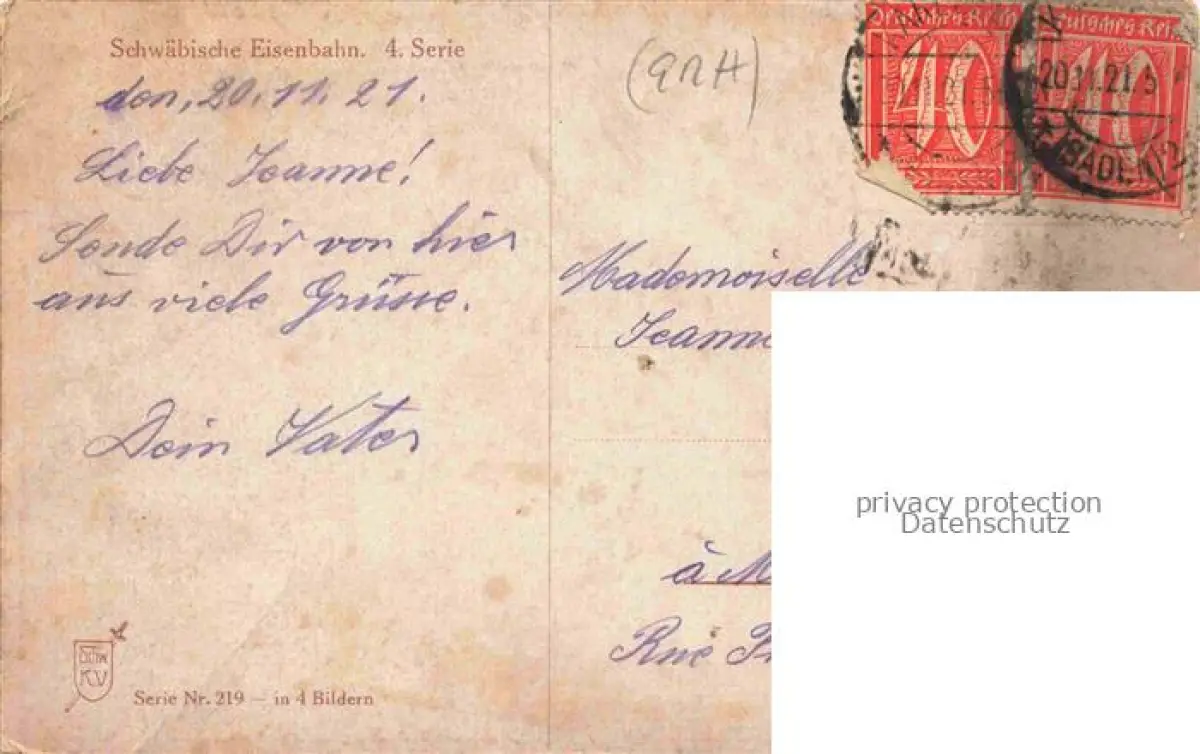 Schwäbische Eisenbahn. 4. Serie
den, 20.11.21.
Liebe Jeanne!
Sende Dir von hier
aus viele Grüsse.
Dein Vater
KV
Serie Nr. 219 — in 4 Bildern
Deutsches Reich
40
Deutsches Rei
40
20.11.21.5
(BADEN)2
Mademoiselle
Jeanne
à M
Rue
privacy protection
Datenschutz